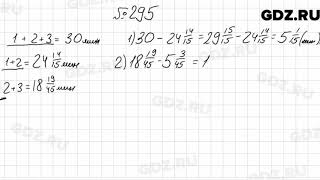 GDZ.RU
№295
1+2+3=30 мин
1+2=24 14/15
2+3=18 19/45 мин
1) 30 - 24 14/15 = 29 15/15 - 24 14/15 = 5 1/15 (мин)
2) 18 19/45 - 5 3/45 = 1
GDZ.RU